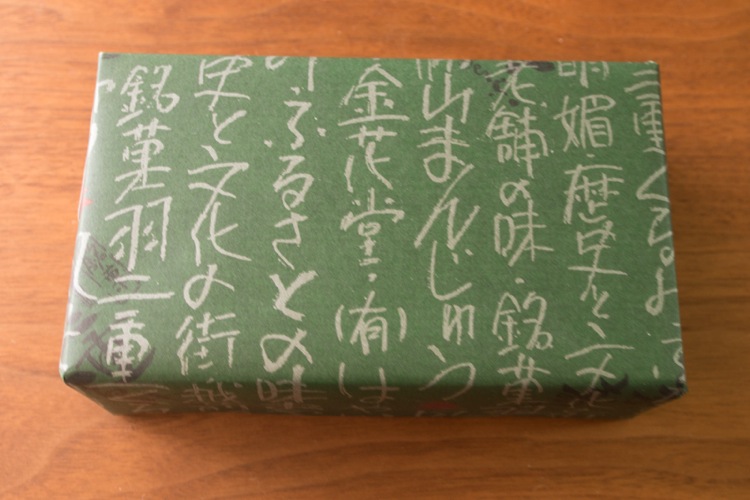 二重くる
明媚・歴史と文化
老舗の味・銘菓
山まんじゅう
・金花堂・(有)は
ふるさとの味
史と文化の街
銘菓羽二重